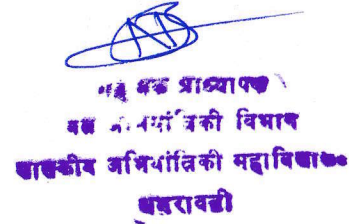 प्राध्यापक
अभियांत्रिकी विभाग
शासकीय अभियांत्रिकी महाविद्यालय
अमरावती